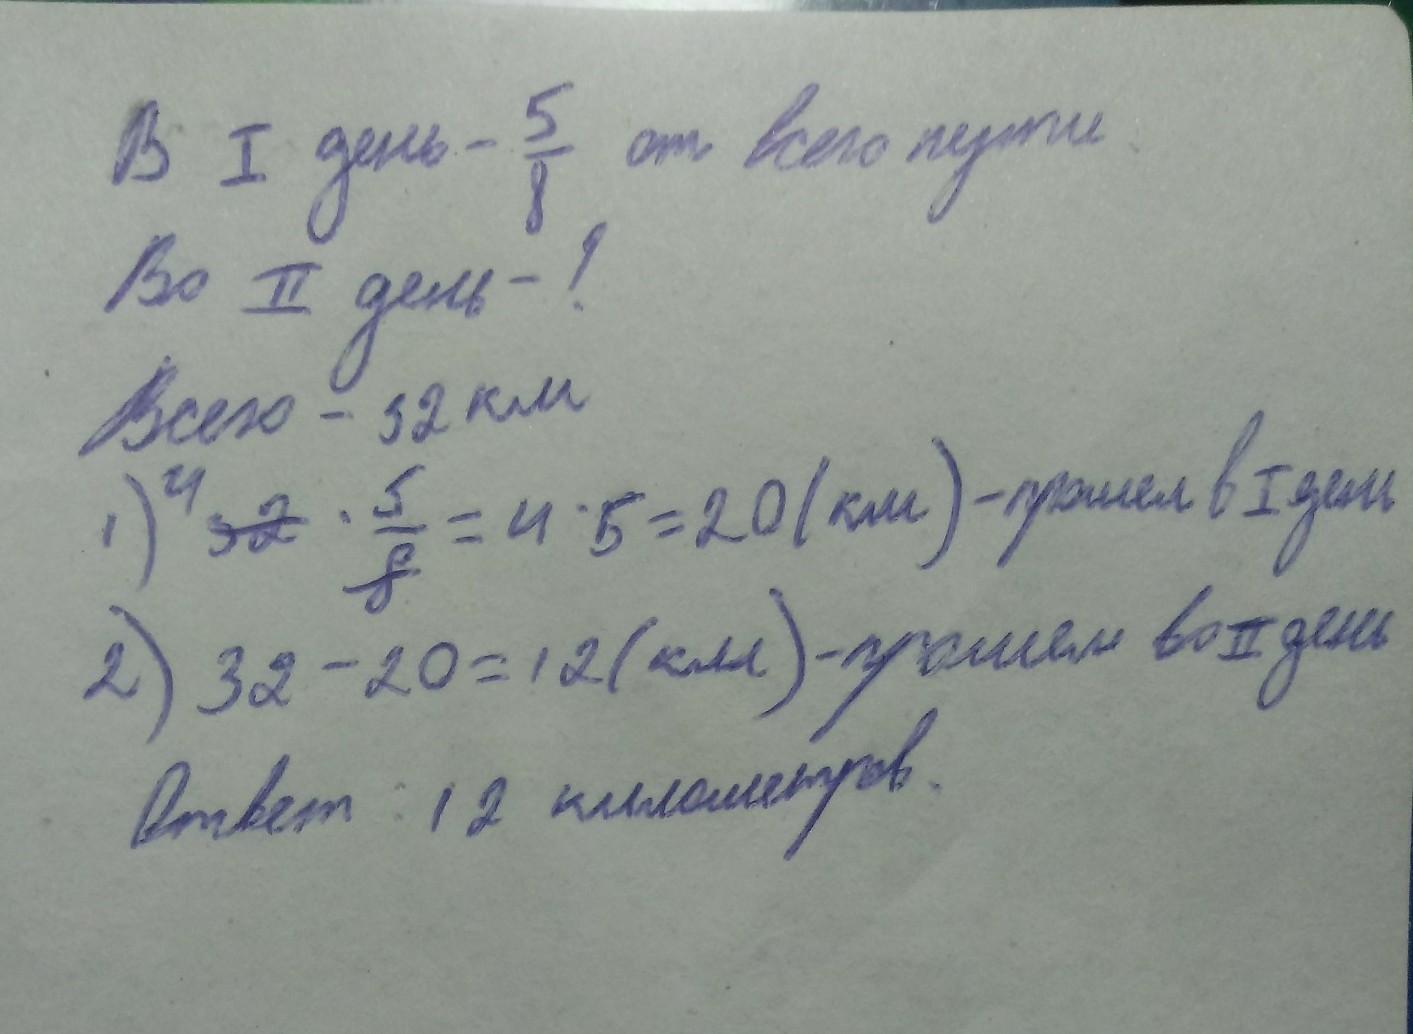 В I день - 5/8 от всего пути
Во II день - ?
Всего - 32 км
1) 4 32 · 5/8 = 4 · 5 = 20 (км) - прошел в I день
2) 32 - 20 = 12 (км) - прошел во II день
Ответ : 12 километров.